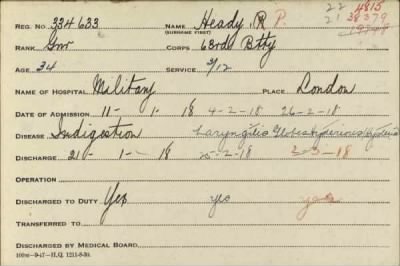 22 4815
REG. NO. 334633 NAME Heady, R P. 21 38379
(SURNAME FIRST) 19748
RANK Gnr CORPS 63rd Btty
AGE 34 SERVICE 3/12
NAME OF HOSPITAL Military PLACE London
DATE OF ADMISSION 11- 1- 18 4-2-18 26-2-18
DISEASE Indigestion Laryngitis
DISCHARGE 21- 1- 18 -2-18 2-3-18
OPERATION
DISCHARGED TO DUTY Yes yes yes
TRANSFERRED TO
DISCHARGED BY MEDICAL BOARD
100M-9-17-H.Q. 1211-8-30.